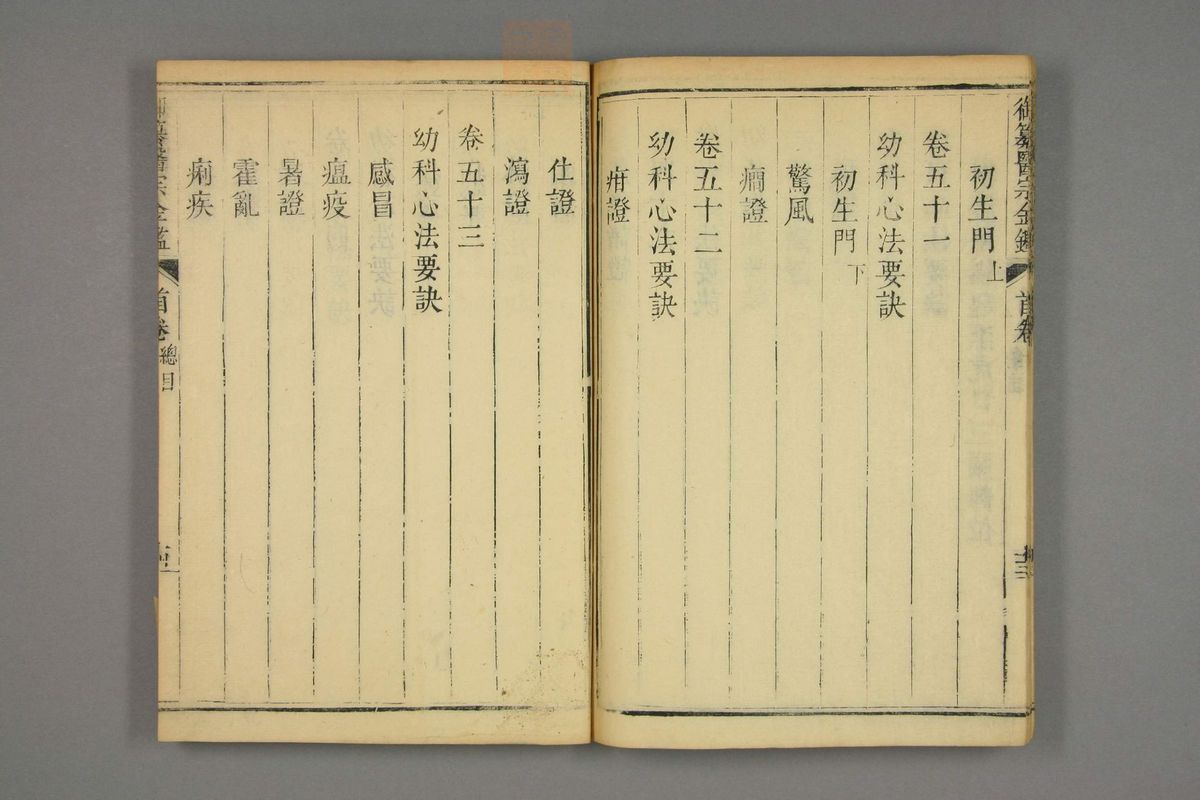 御纂醫宗金鑑 首卷
初生門上
卷五十一
幼科心法要訣
初生門下
驚風
癇證
卷五十二
幼科心法要訣
疳證
仕證
瀉證
卷五十三
幼科心法要訣
感冒
瘟疫
暑證
霍亂
痢疾
御纂醫宗金鑑 首卷 總目